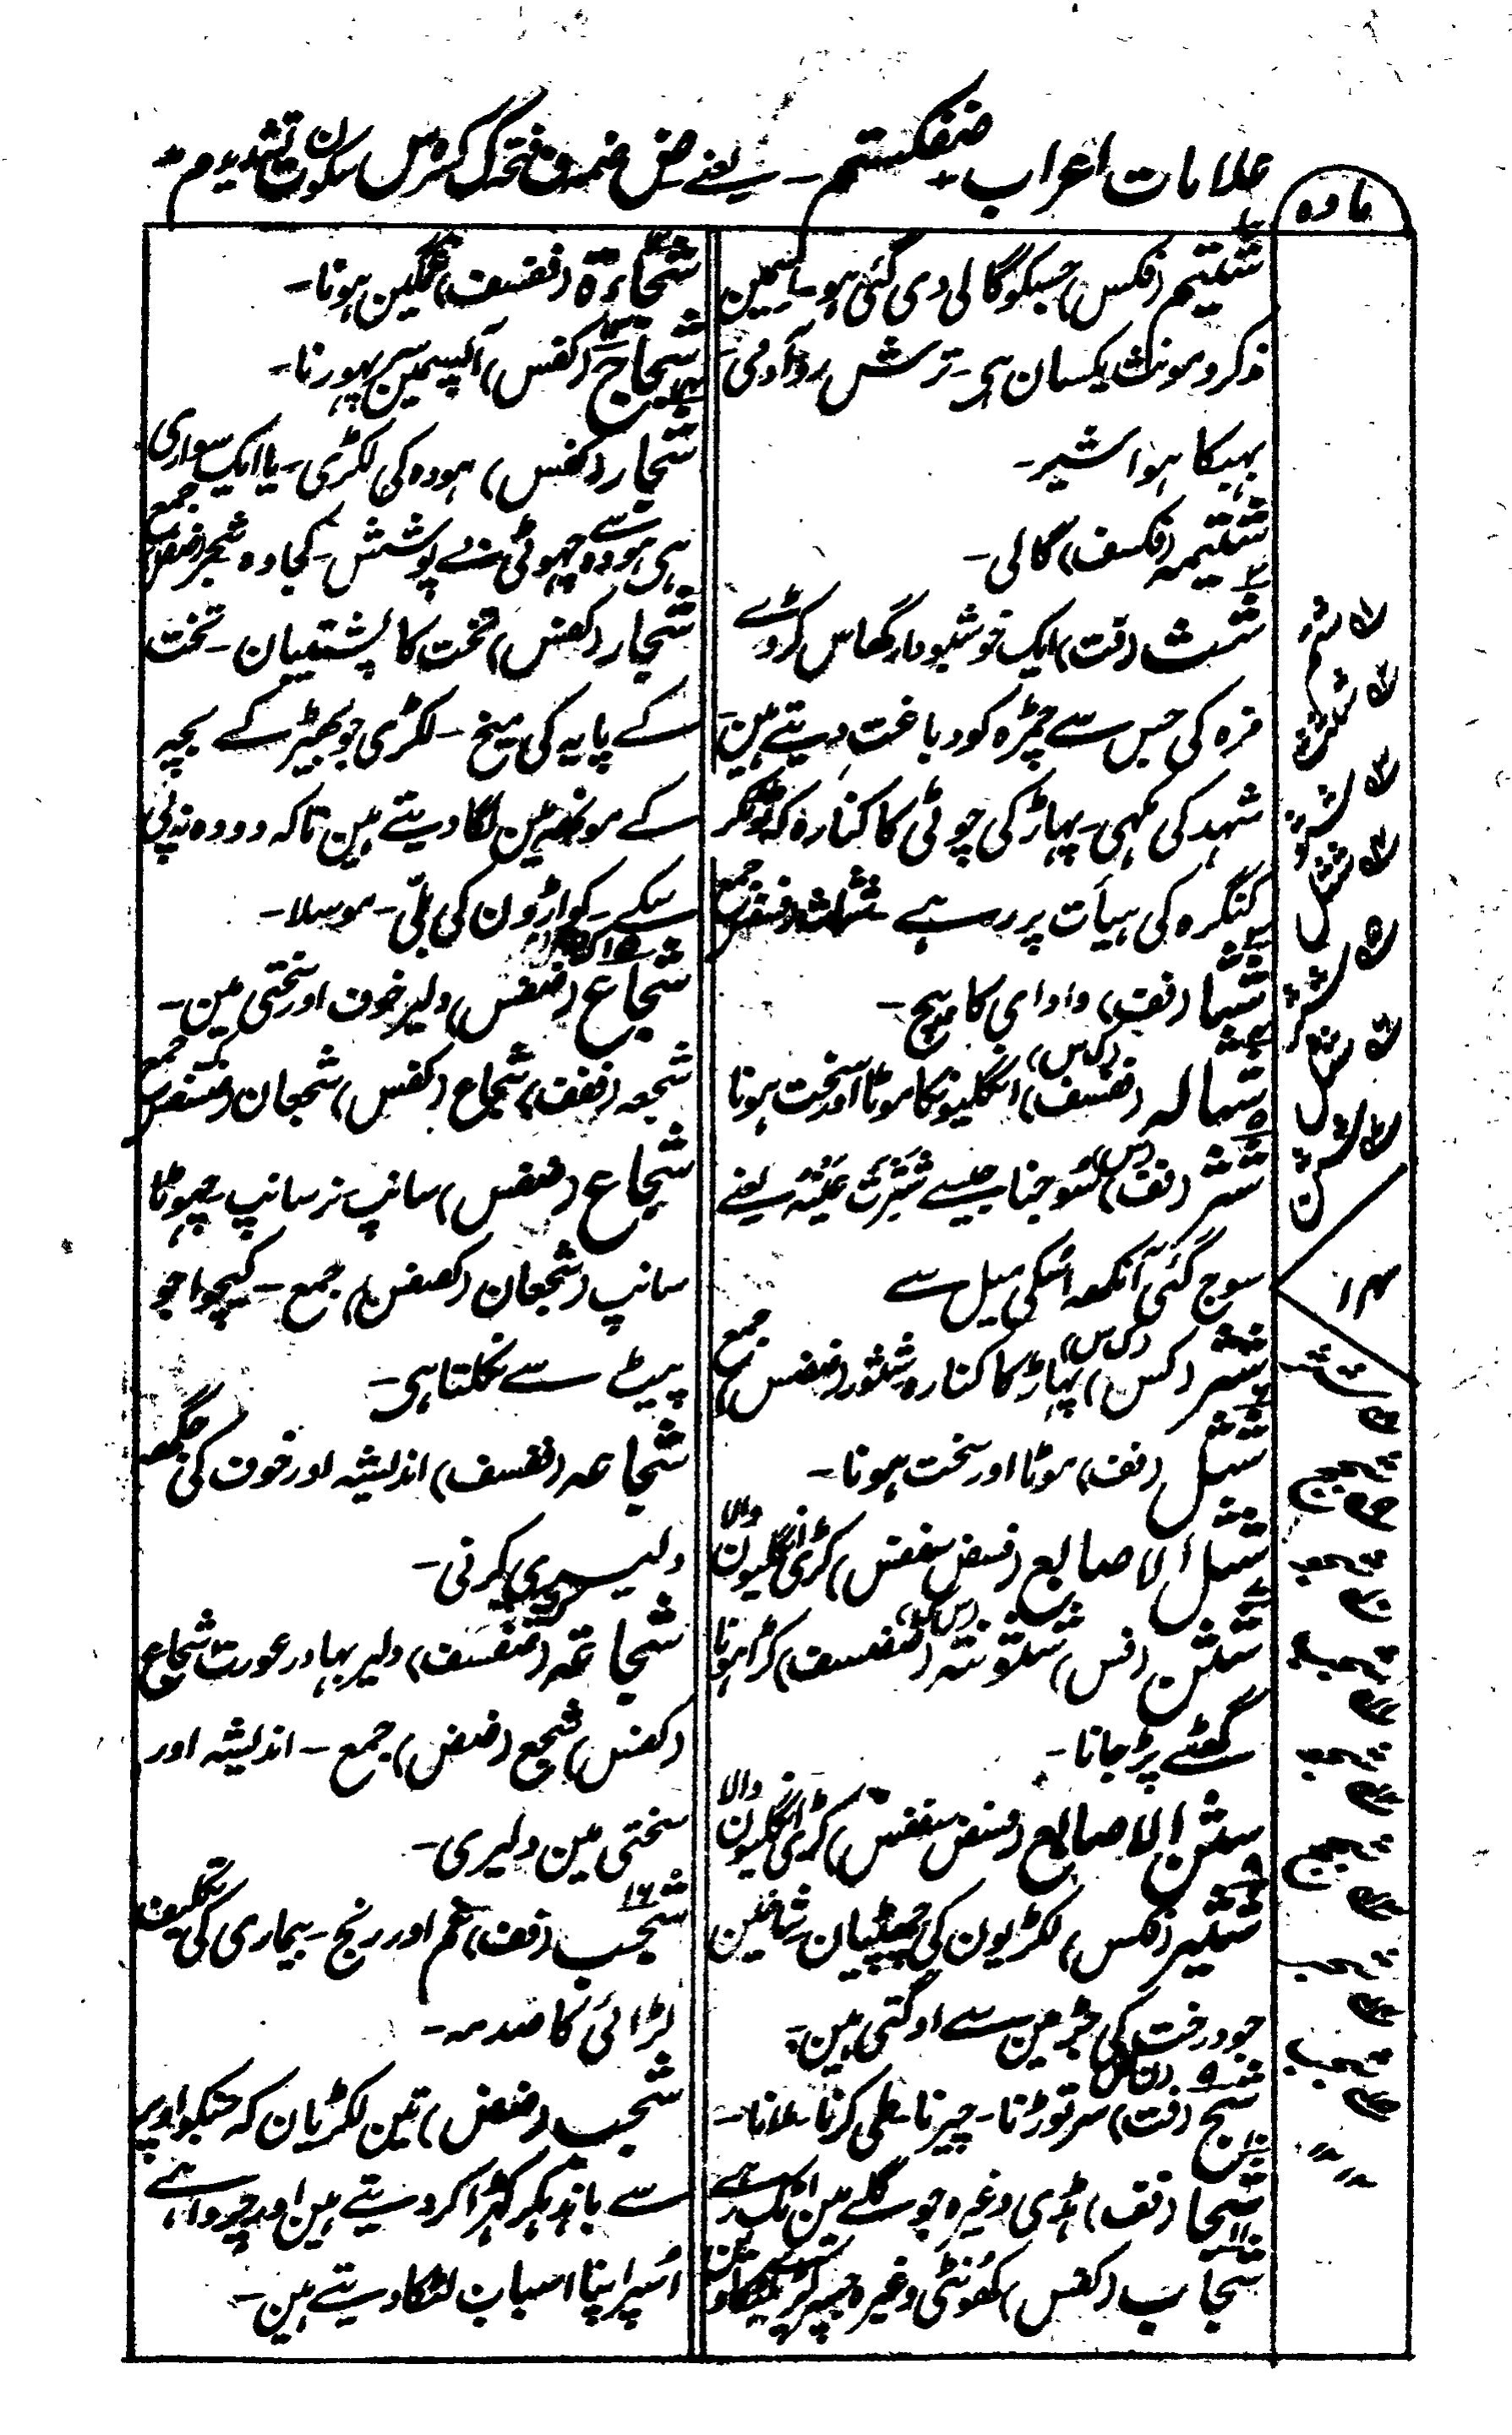 علامات اعراب ضفکستم - یعنے ض ضمہ ف فتحہ ک کسرہ س سکون ت تشدید م مد
مادہ
شتیم (فکس) جسکو گالی دی گئی ہو - اسمین
مذکر و مونث یکسان ہی - ترش رو آدمی -
بہبکا ہوا شیر -
شتیمہ (فکسف) گالی -
شث (فت) ایک خوشبودار گھاس کڑوے
مزہ کی جس سے چمڑہ کو دباغت دیتے ہین -
شہد کی مکہی - پہاڑ کی چوٹی کا کنارہ کہ ٹوٹکر
کنگرہ کی ہیأت پر رہے شثاث جمع
شثا (فف) وادی کا بیچ -
شثالہ (ففسف) انگلیونکا موٹا اور سخت ہونا
شثر (فف) سوجنا جیسے شثرت عینہ یعنے
سوج گئی آنکھہ اسکی میل سے
شثر (کس) پہاڑ کا کنارہ شثور (ضضس) جمع
شثل (فف) موٹا اور سخت ہونا -
شثل الاصابع (فسض سففس) کڑی انگلیون والا
شثن (فس) شثونتہ (ضضسف) کڑا ہونا
گھٹے پڑ جانا -
شثن الاصابع (فسض سففس) کڑی انگلیون والا
شثیر (فکس) لکڑیون کی چھپٹیان شاخین
جو درخت کی جڑ مین سے اوگتی ہین -
شج (فت) سر توڑنا - چیرنا - طی کرنا - ملانا -
شجا (فف) ہڈی وغیرہ جو گلے مین اٹک رہے
شجاب (کفس) کھونٹی وغیرہ جسپر کپڑے لٹکاوین
شجاءۃ (ففسف) غمگین ہونا -
شجاج (کفس) آپسمین سر پہورنا -
شجار (کفس) ہودہ کی لکڑی - یا ایک سواری
ہی ہودہ سے چہوٹی بے پوشش - کجاوہ شجر (ضض) جمع
شجار (کفس) تخت کا پشتیبان - تخت
کے پایہ کی میخ - لکڑی جو بھیڑ کے بچہ
کے مونھہ مین لگا دیتے ہین تاکہ دودہ نہ پی
سکے - کواڑون کی بلّی - موسلا -
شجاع (ضفس) دلیر خوف اور سختی مین -
شجعہ (ففف) شجاع (کفس) شجعان جمع
شجاع (ضفس) سانپ نر سانپ - چہوٹا
سانپ (شجعان (کسفس) جمع - کیچوا جو
پیٹ سے نکلتا ہی -
شجاعہ (ففسف) اندیشہ اور خوف کی جگھہ
دلیری کرنی -
شجاعۃ (ضفسف) دلیر بہادر عورت شجاع
(کفس) شجع (ضض) جمع - اندیشہ اور
سختی مین دلیری -
شجب (فف) غم اور رنج - بیماری کی تکلیف
لڑائی کا صدمہ -
شجب (ضض) تین لکڑیان کہ جنکو اوپر
سے باندہکر کھڑا کر دیتے ہین اور چرواہے
اسپر اپنا اسباب لٹکا دیتے ہین -